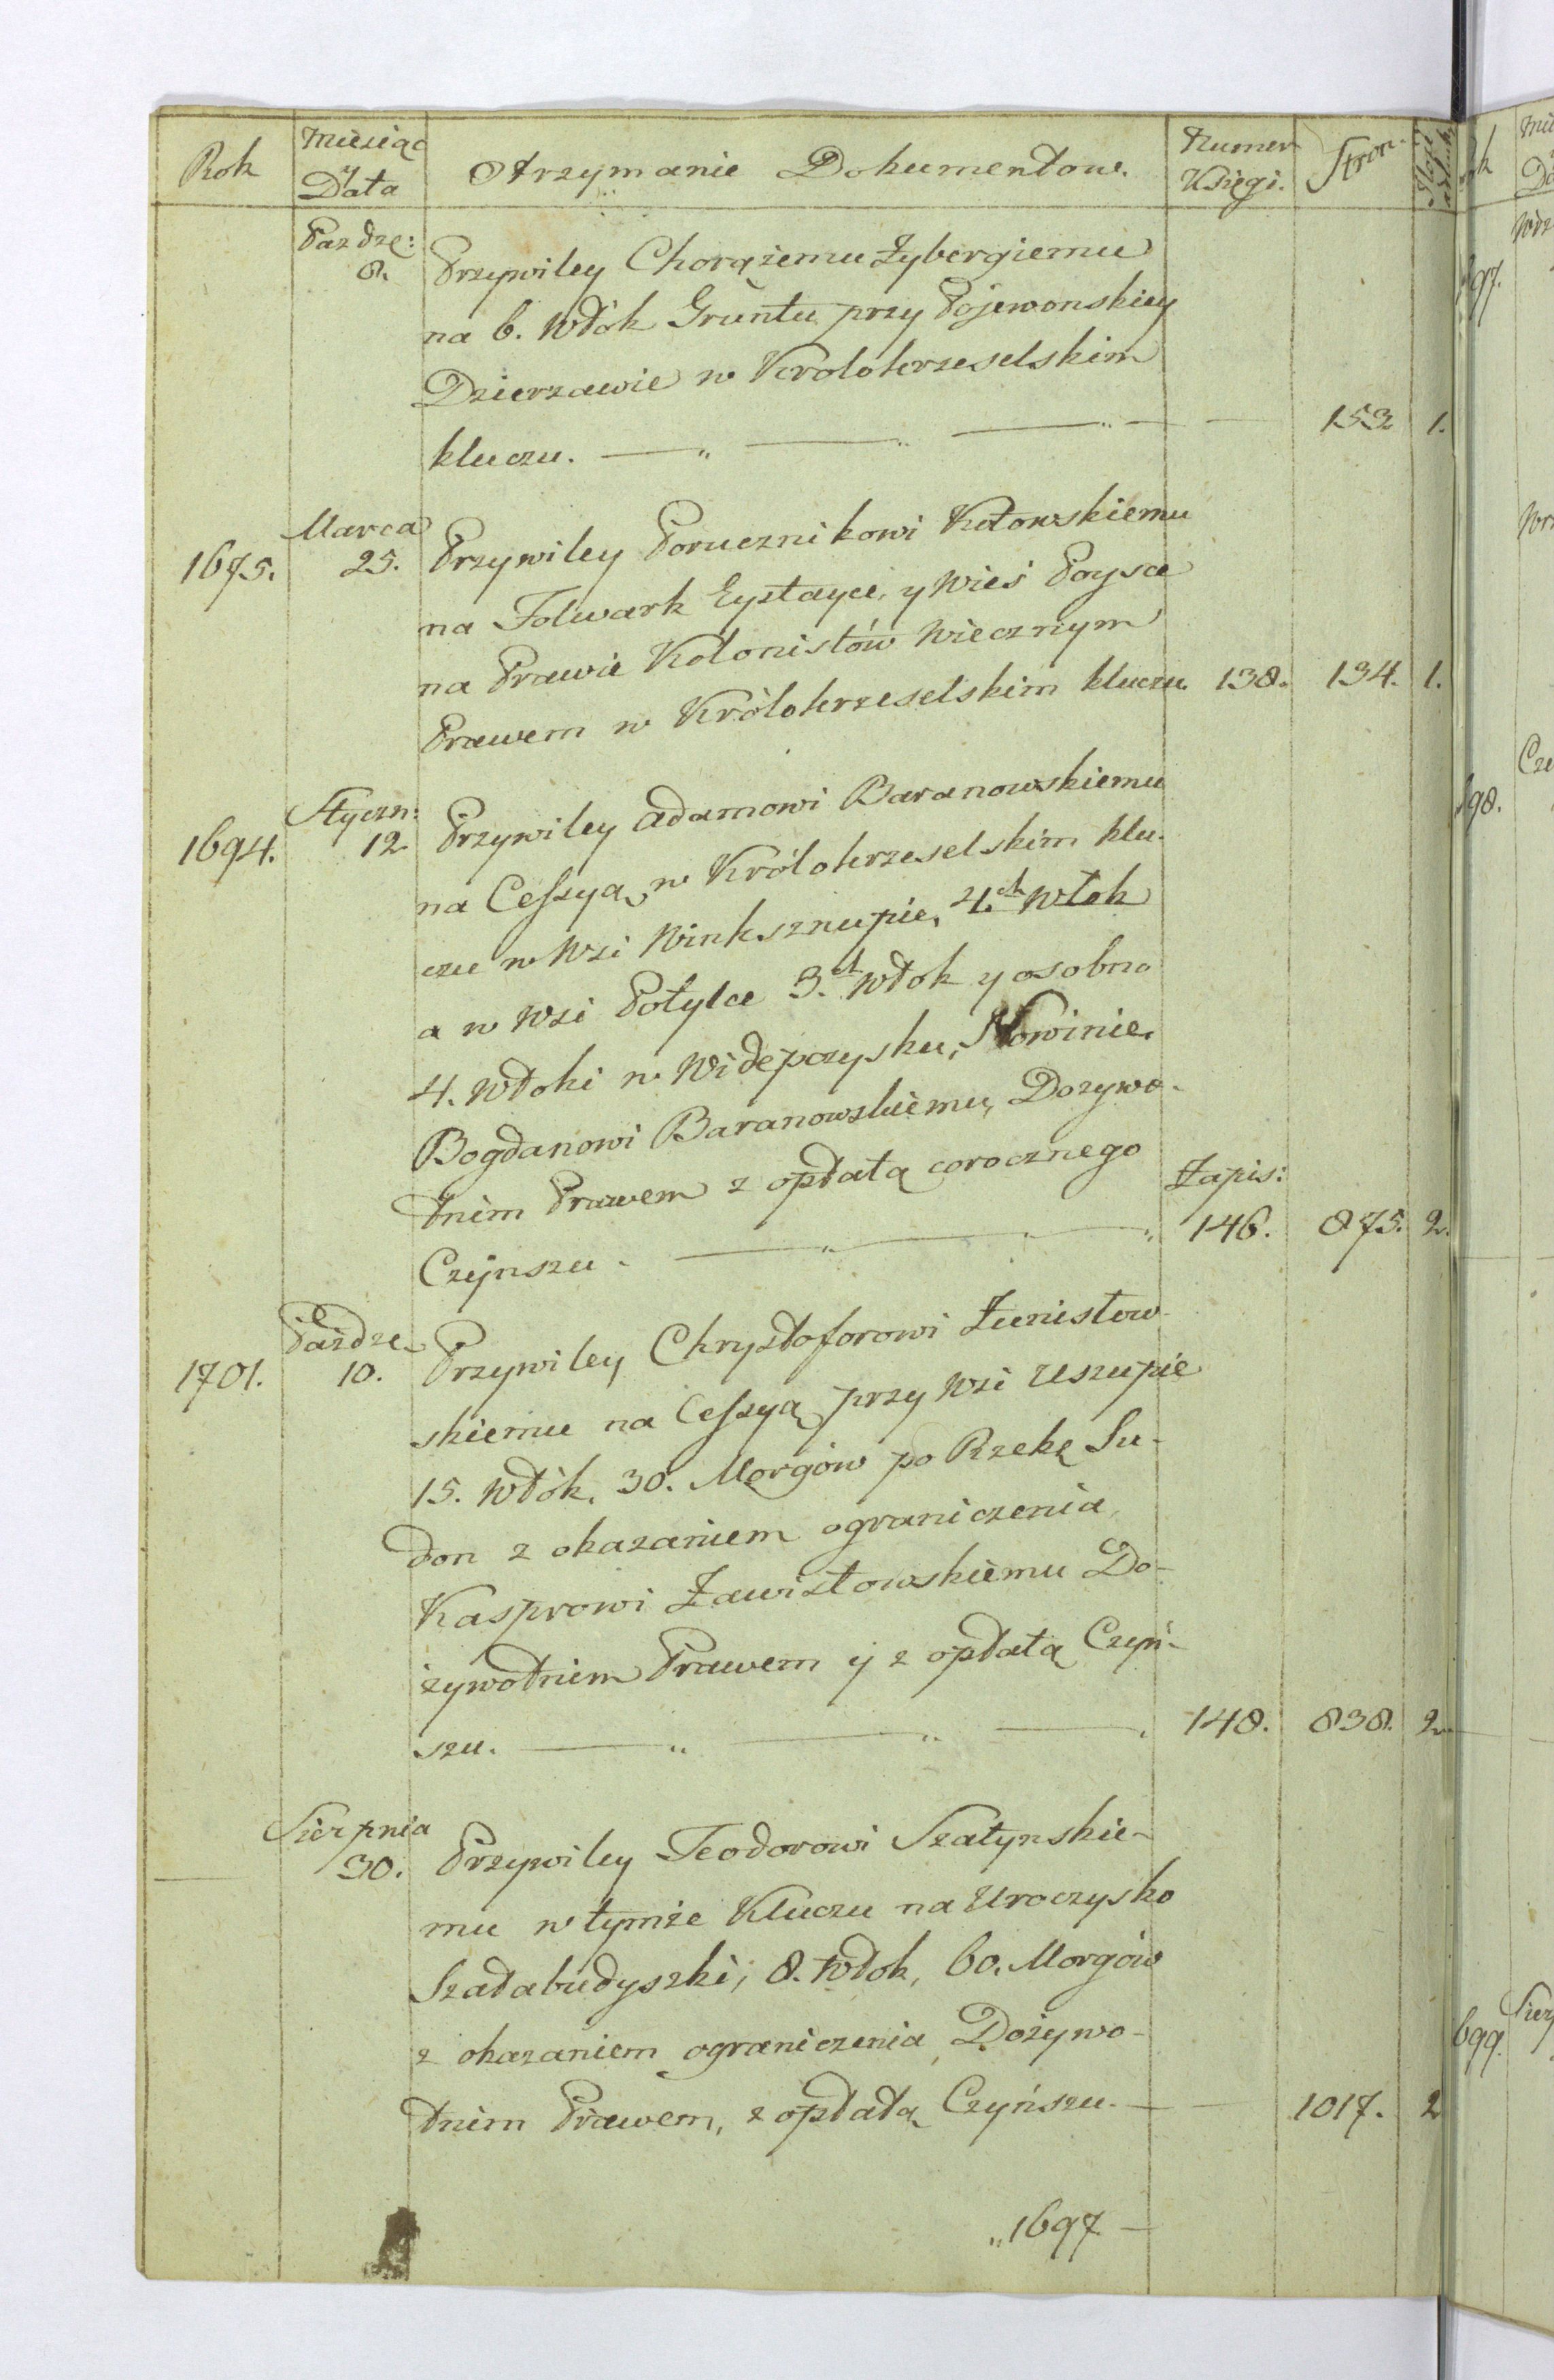 Rok Miesiąc y Data Otrzymanie Dokumentow. Numer Księgi. Stron.
Pazdze: 8. Przywiley Chorążemu Zybergiemu
na 6. Włók Gruntu przy Pojewonskiey
Dzierzawie w Krolokrzeselskim
kluczu. — „ — „ — „ — — 153 1.
1675. Marca 25. Przywiley Porucznikowi Kotowskiemu
na Folwark Eysztayce, y Wieś Poysce
na Prawie Kolonistów Wiecznym
Prawem w Królokrzeselskim kluczu. 138. 134. 1.
1694. Styczn: 12. Przywiley Adamowi Baranowskiemu
na Cessyą, w Królokrzeselskim klu-
czu w Wsi Winksznupie, 4.ch Włok
a w Wsi Potylce 3.ch Włok y osobno
4. Włoki w Widepczysku, Nowinie.
Bogdanowi Baranowskiemu, Dozywo-
tnim Prawem z opłatą corocznego
Czynszu. — „ — „ Zapis: 146. 875. 2.
1701. Paździe. 10. Przywiley Chrysztoforowi Zunistow-
skiemu na Cessyą przy Wsi Uszupie
15. Włók, 30. Morgów po Rzekę Su-
don z okazaniem ograniczenia,
Kasprowi Zawistowskiemu Do-
żywotniem Prawem y z opłatą Czyń-
szu. — „ — „ — . 148. 838. 2.
— Sierpnia 30. Przywiley Teodorowi Szatynskie-
mu w tymże Kluczu na Uroczysko
Szatabudyszki, 8. Włok, 60. Morgów
z okazaniem ograniczenia, Dożywo-
tnim Prawem, z opłatą Czyńszu. — — 1017. 2
„1697 —